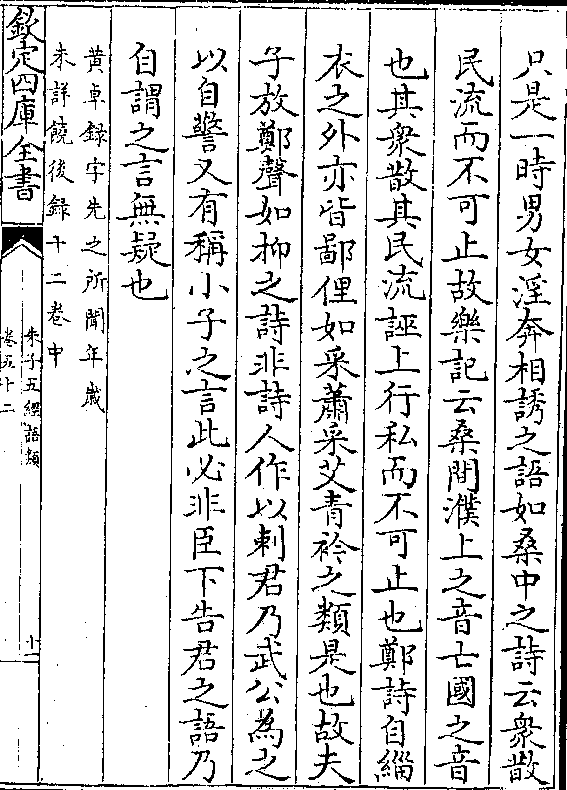 只是一時男女淫奔相誘之語如桑中之詩云衆散
民流而不可止故樂記云桑間濮上之音亡國之音
也其衆散其民流誣上行私而不可止也鄭詩自緇
衣之外亦皆鄙俚如采蕭采艾青衿之類是也故夫
子放鄭聲如抑之詩非詩人作以刺君乃武公為之
以自警又有稱小子之言此必非臣下告君之語乃
自謂之言無疑也
黄卓録字先之所聞年歲
未詳饒後録十二卷中
欽定四庫全書
朱子五經語類
卷五十二
十一